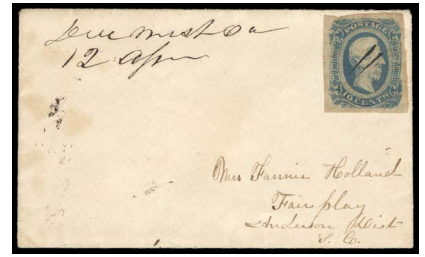 12 Apr
POSTAGE
TEN CENTS
Miss Fannie Holland
Fair play
Anderson Dist
S. C.